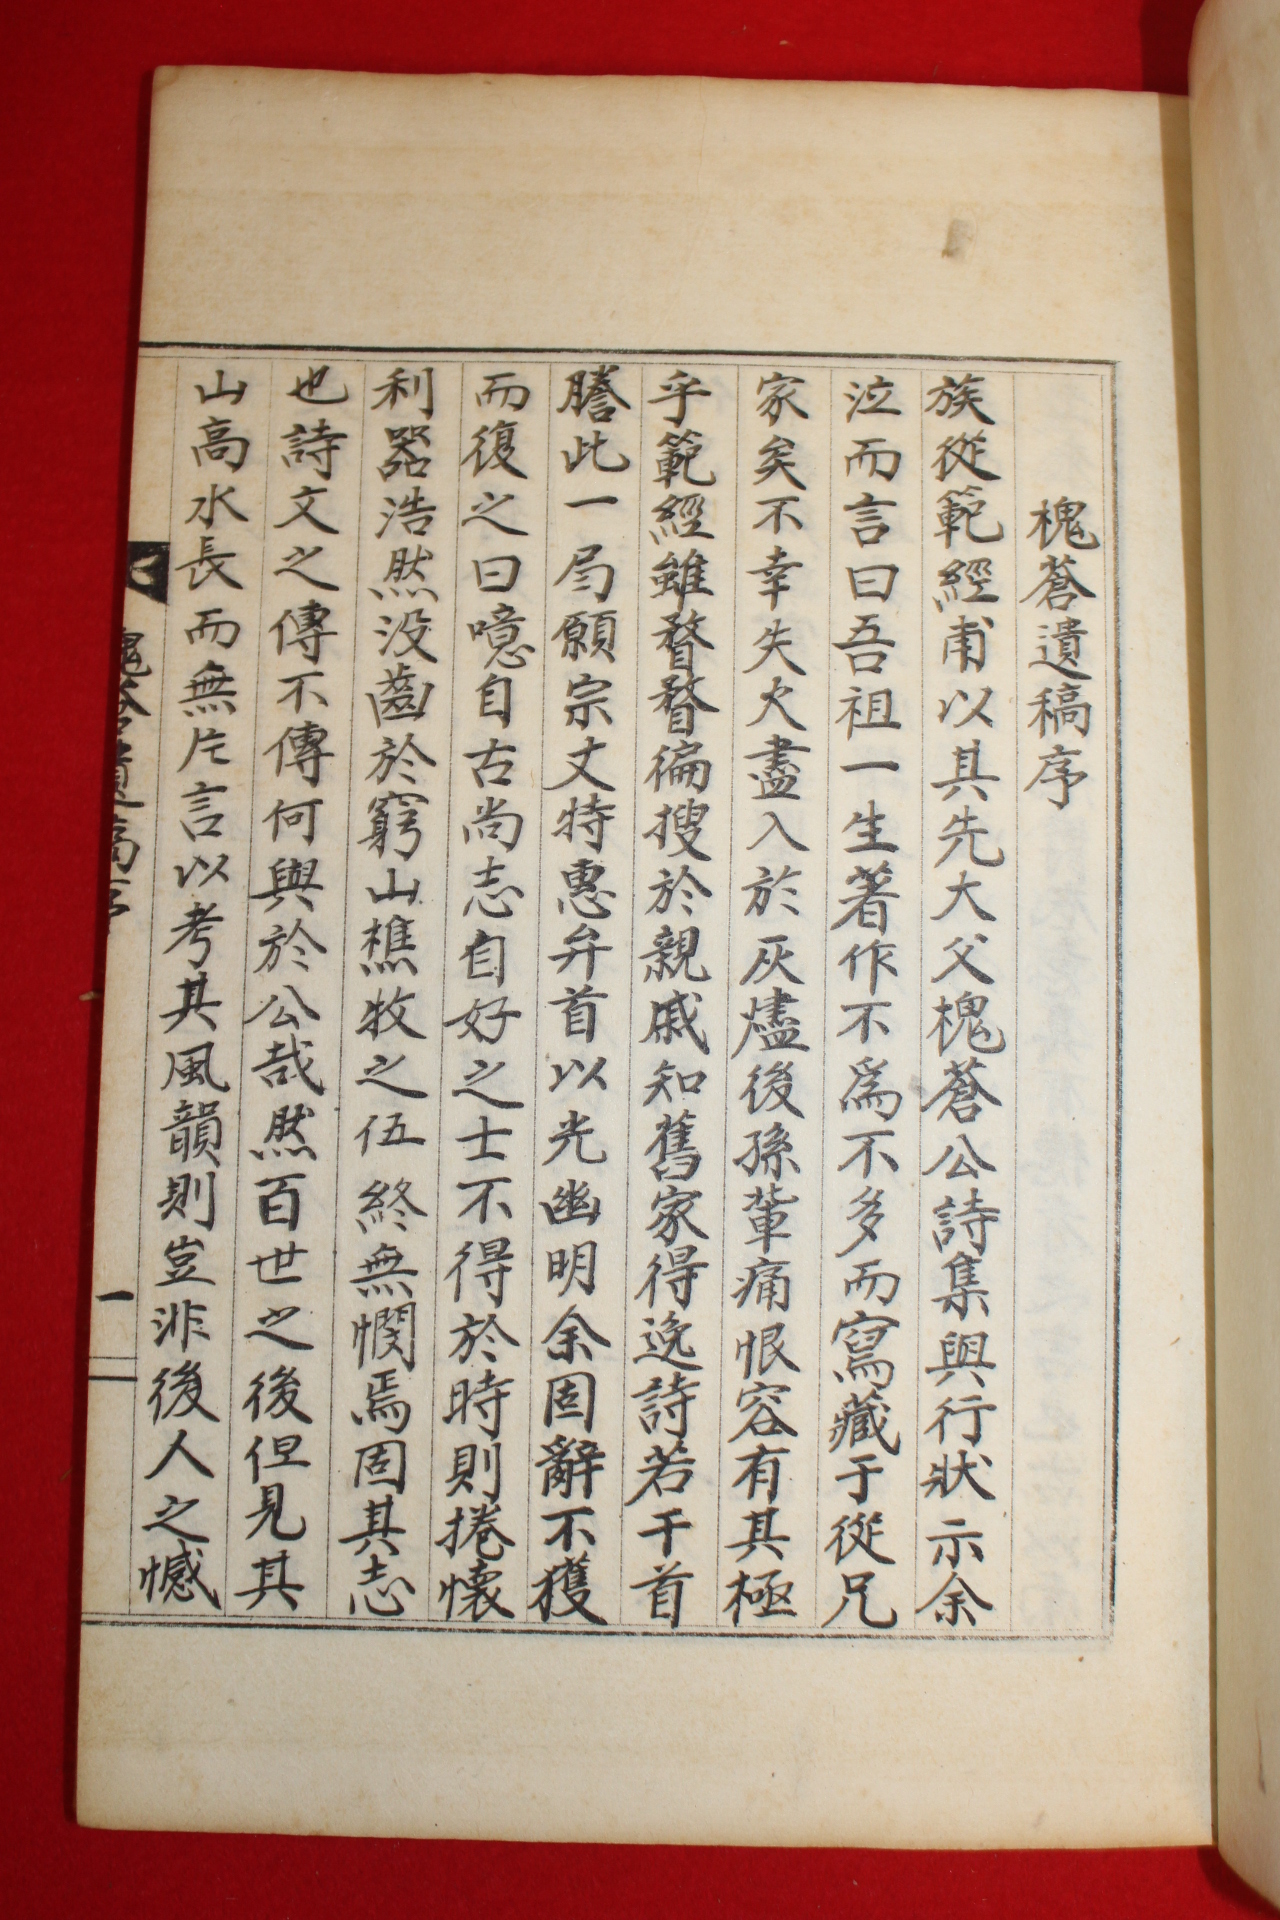 槐蒼遺稿序
族從範經甫以其先大父槐蒼公詩集與行狀示余
泣而言曰吾祖一生著作不爲不多而寫藏于從兄
家矣不幸失火盡入於灰燼後孫輩痛恨容有其極
乎範經雖瞀瞀徧搜於親戚知舊家得逸詩若干首
謄此一局願宗丈特惠弁首以光幽明余固辭不獲
而復之曰噫自古尚志自好之士不得於時則捲懷
利器浩然没齒於窮山樵牧之伍終無憫焉固其志
也詩文之傳不傳何與於公哉然百世之後但見其
山高水長而無片言以考其風韻則豈非後人之憾
槐蒼遺稿序
一